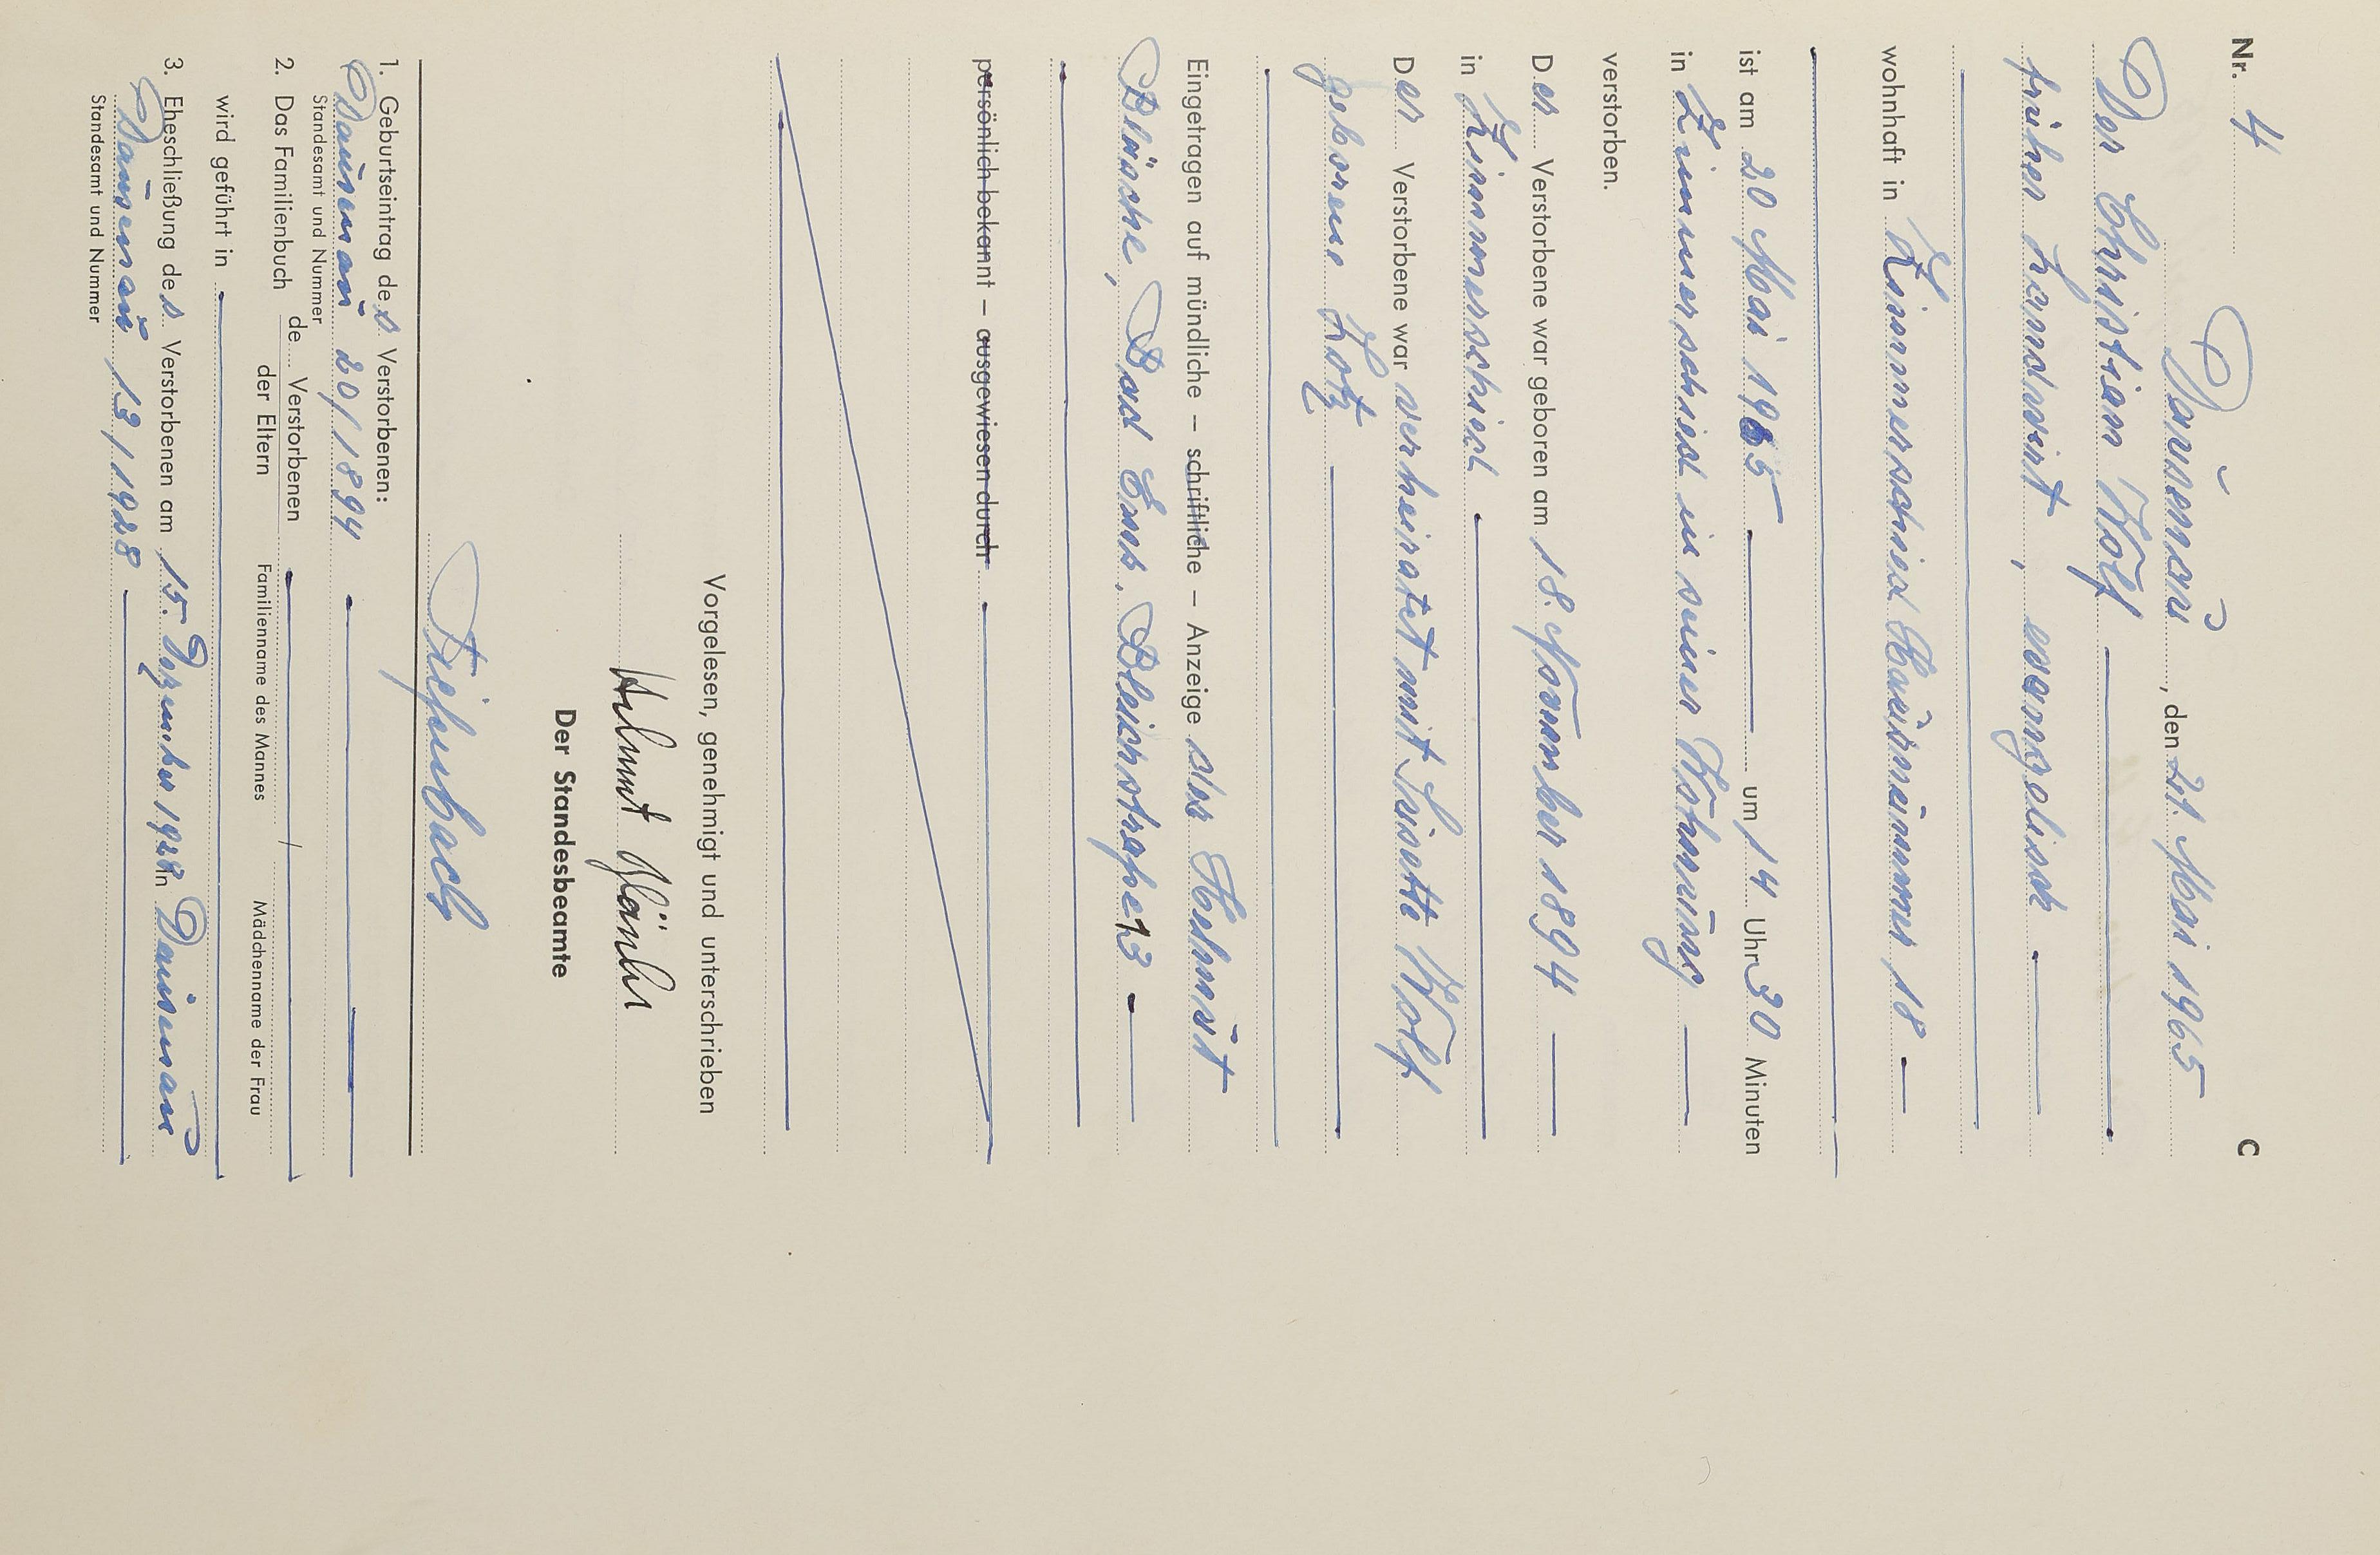 Nr. 4 C
Dausenau, den 21. Mai 1965
Der Christian Wolf
früher Landwirt, evangelisch
wohnhaft in Zimmerschied Hausnummer 18
ist am 20 Mai 1965 um 14 Uhr 30 Minuten
in Zimmerschied in seiner Wohnung
verstorben.
Der Verstorbene war geboren am 18. November 1894
in Zimmerschied
Der Verstorbene war verheiratet mit Lisette Wolf
geborene Lotz
Eingetragen auf mündliche – schriftliche – Anzeige des Helmut
Bläsche, Bad Ems, Bleichstraße 13
persönlich bekannt – ausgewiesen durch
Vorgelesen, genehmigt und unterschrieben
Helmut
Der Standesbeamte
1. Geburtseintrag des Verstorbenen:
Dausenau 20/1894
Standesamt und Nummer
2. Das Familienbuch de Verstorbenen /
der Eltern Familienname des Mannes Mädchenname der Frau
wird geführt in
3. Eheschließung des Verstorbenen am 15. Dezember 1928 in Dausenau
Dausenau 13/1928
Standesamt und Nummer